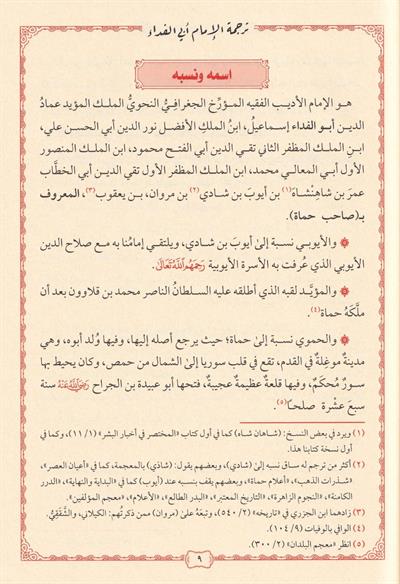 ترجمة الإمام أبي الفداء
اسمه ونسبه
هـو الإمام الأديب الفقيه المؤرِّخ الجغرافيُّ النحويُّ الملـك المؤيد عمادُ
الديـن أبـو الفداء إسماعيلُ، ابنُ الملكِ الأفضل نور الدين أبي الحسن علي،
ابن الملك المظفر الثاني تقي الدين أبي الفتح محمود، ابن الملك المنصور
الأول أبي المعالي محمد، ابن الملك المظفر الأول تقي الدين أبي الخطَّاب
عمرَ بن شاهِنْشاهَ(١) بن أيوبَ بن شادي(٢) بن مروان، بن يعقوب(٣)، المعروف
بـ(صاحب حماة).
والأيوبي نسبة إلىٰ أيوبَ بن شادي، ويلتقي إمامُنا به مع صلاح الدين
الأيوبي الذي عُرفت به الأسرة الأيوبية رَحِمَهُمُ اللَّهُ تَعَالَىٰ.
والمؤيَّد لقبه الذي أطلقه عليه السلطانُ الناصر محمد بن قلاوون بعد أن
ملَّكَهُ حماة(٤).
والحموي نسبة إلىٰ حماة؛ حيث يرجع أصله إليها، وفيها وُلد أبوه، وهي
مدينةٌ موغِلةٌ في القدم، تقع في قلب سوريا إلىٰ الشمال من حمص، وكان يحيط بها
سورٌ مُحكَمٌ، وفيها قلعةٌ عظيمةٌ عجيبةٌ، فتحها أبو عبيدة بن الجراح رَضِيَ اللَّهُ عَنْهُ سنة
سبعَ عشْرة صلحًا(٥).
(١) ويرد في بعض النسخ: (شاهان شاه) كما في أول كتاب «المختصر في أخبار البشر» (١١/١)، وكما في
أول نسخة كتابنا هذا.
(٢) أكثر من ترجم له ساق نسبه إلىٰ (شادي)، وبعضهم يقول: (شاذي) بالمعجمة، كما في «أعيان العصر»،
«شذرات الذهب»، «أعلام حماة»، وبعضهم يقف بنسبه عند (أيوب) كما في «البداية والنهاية»، «الدرر
الكامنة»، «النجوم الزاهرة»، «التاريخ المعتبر»، «البدر الطالع»، «الأعلام»، «معجم المؤلفين».
(٣) زادهما ابن الجزري في «تاريخه» (٥٤٠/٢)، وتبعَهُ علىٰ (مروان) ممن ذكرتُهم: الكيلاني، والشَّقَفِيُّ.
(٤) الوافي بالوفيات (١٠٤/٩).
(٥) انظر «معجم البلدان» (٣٠٠/٢).
٩